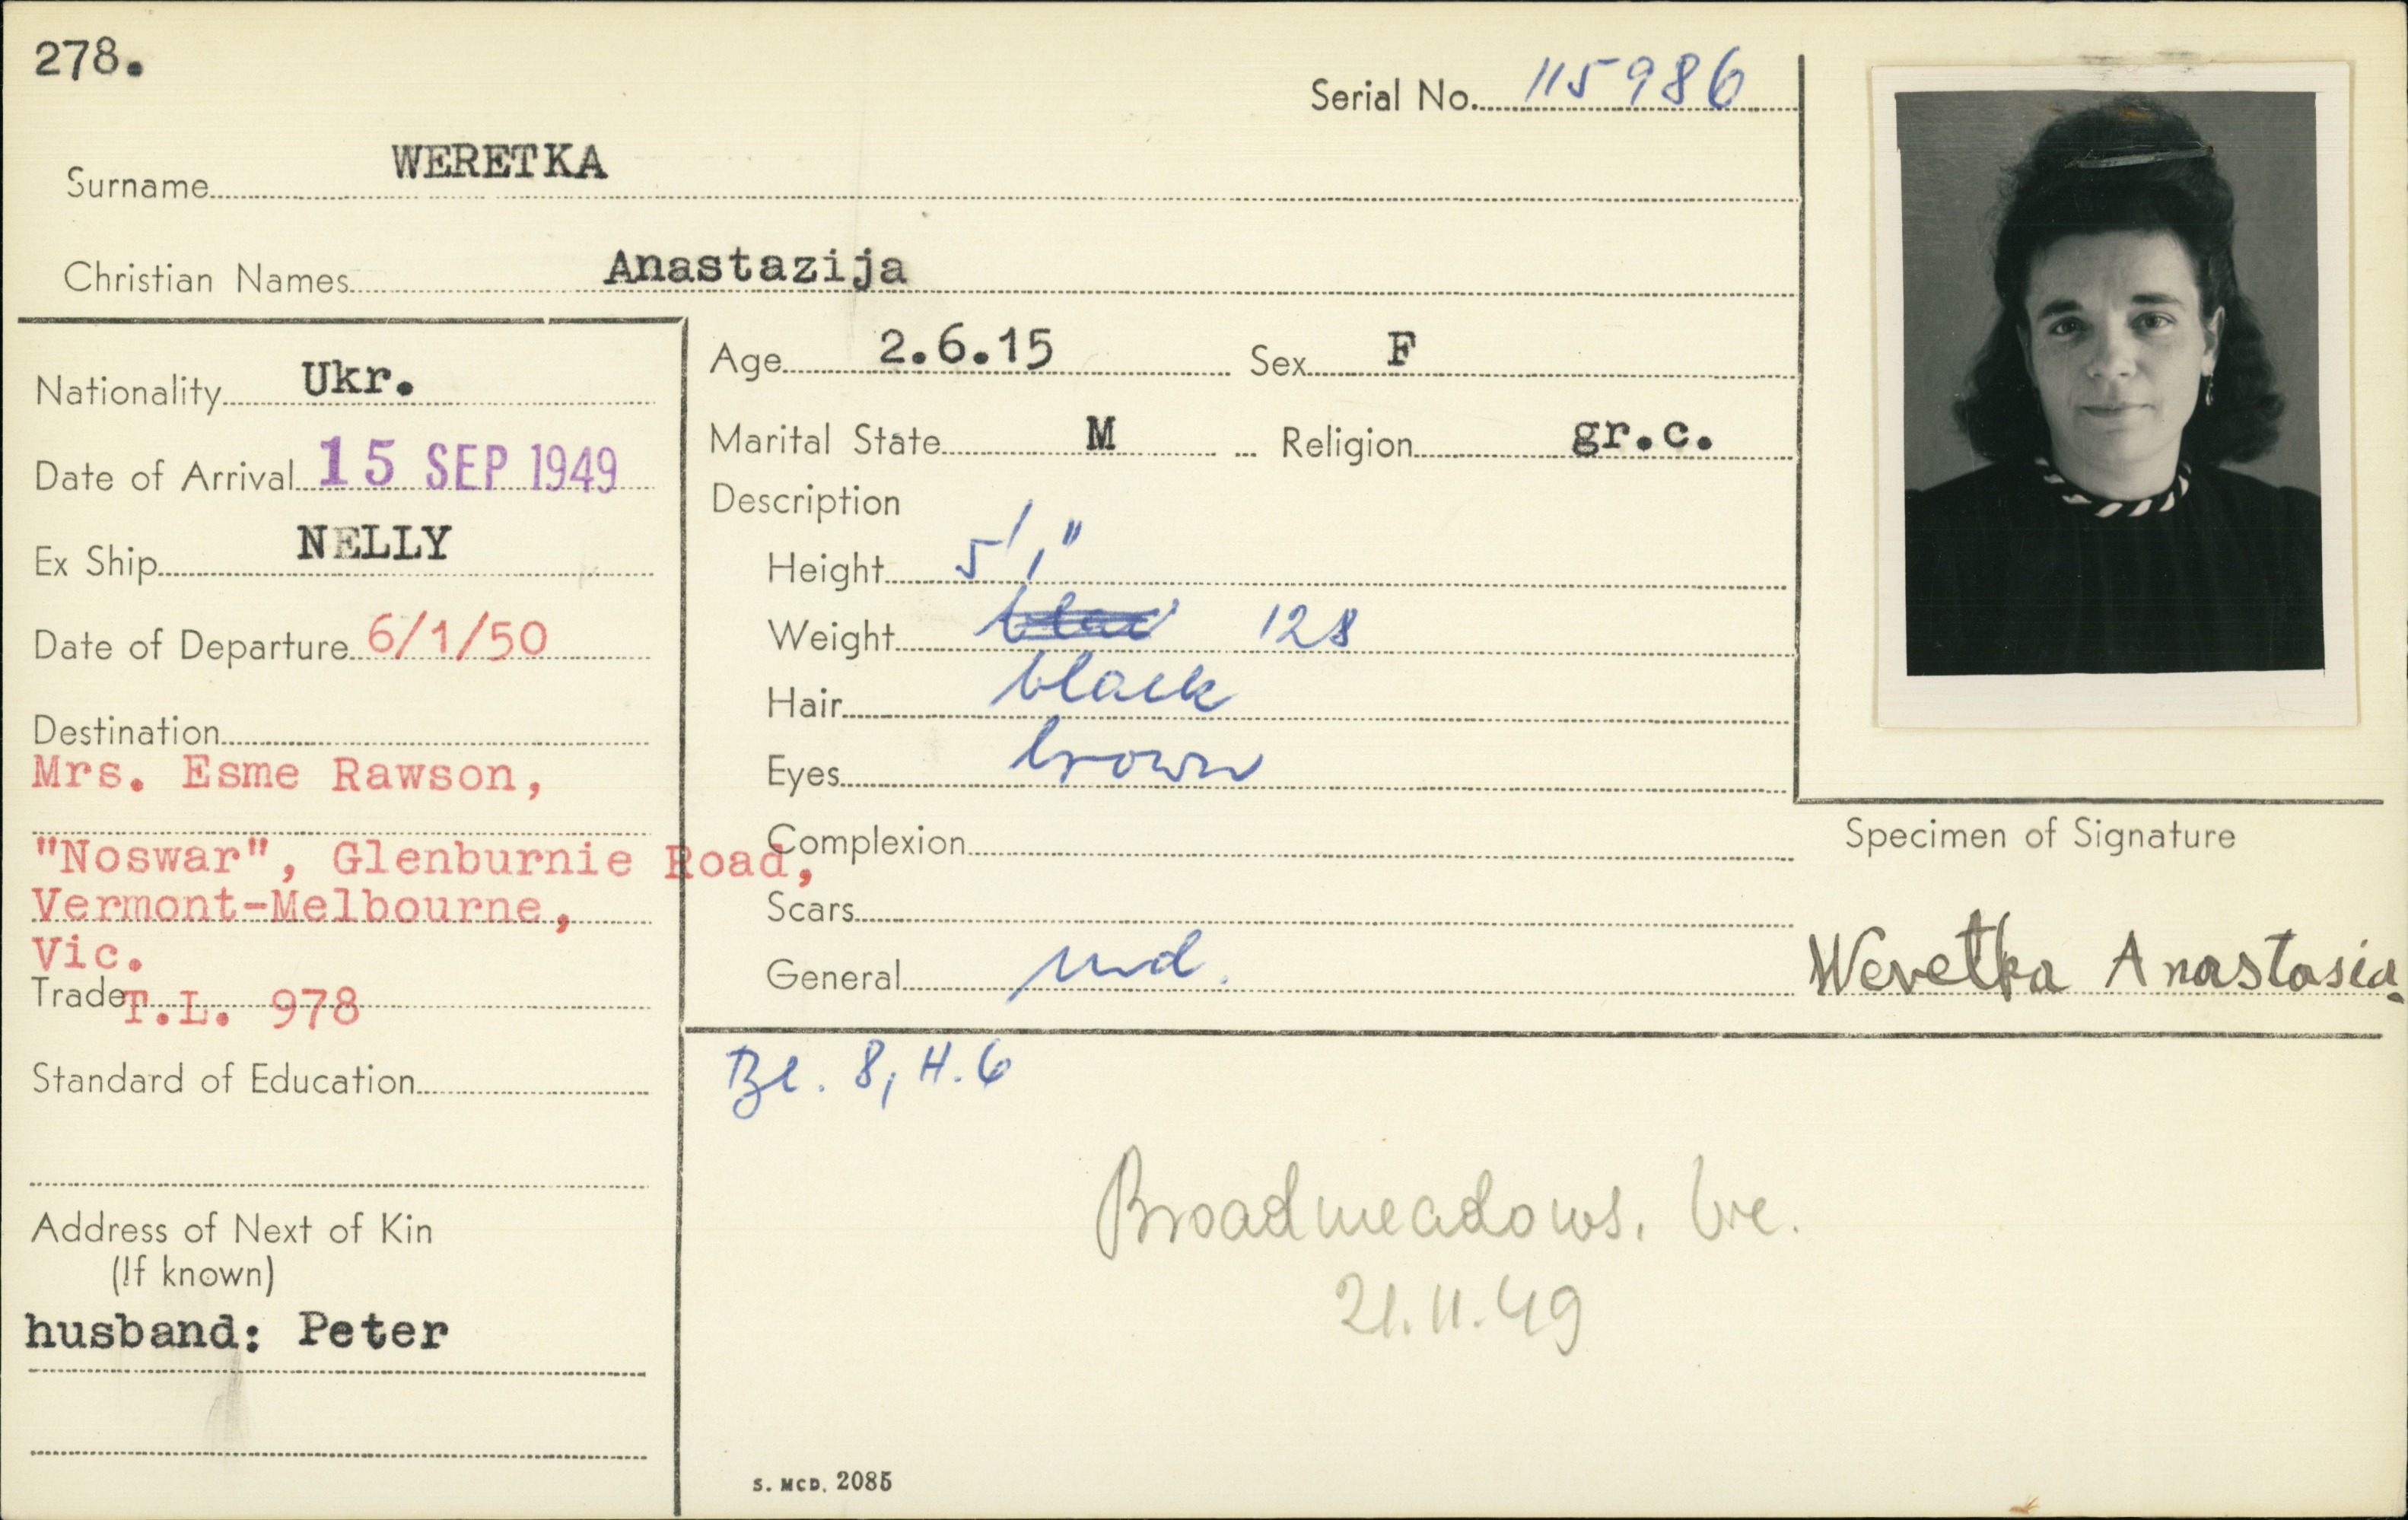 278.
Serial No. 115986
Surname WERETKA
Christian Names Anastazija
Nationality Ukr.
Date of Arrival 15 SEP 1949
Ex Ship NELLY
Date of Departure 6/1/50
Destination
Mrs. Esme Rawson,
"Noswar", Glenburnie Road,
Vermont-Melbourne,
Vic.
Trade T.L. 978
Standard of Education
Address of Next of Kin
(If known)
husband: Peter
Age 2.6.15 Sex F
Marital State M Religion gr.c.
Description
Height 5' 1"
Weight 128
Hair black
Eyes brown
Complexion
Scars
General
Specimen of Signature
Weretka Anastasia
Bl. 8, H.6
Broadmeadows.
21.11.49
S. MCD. 2085